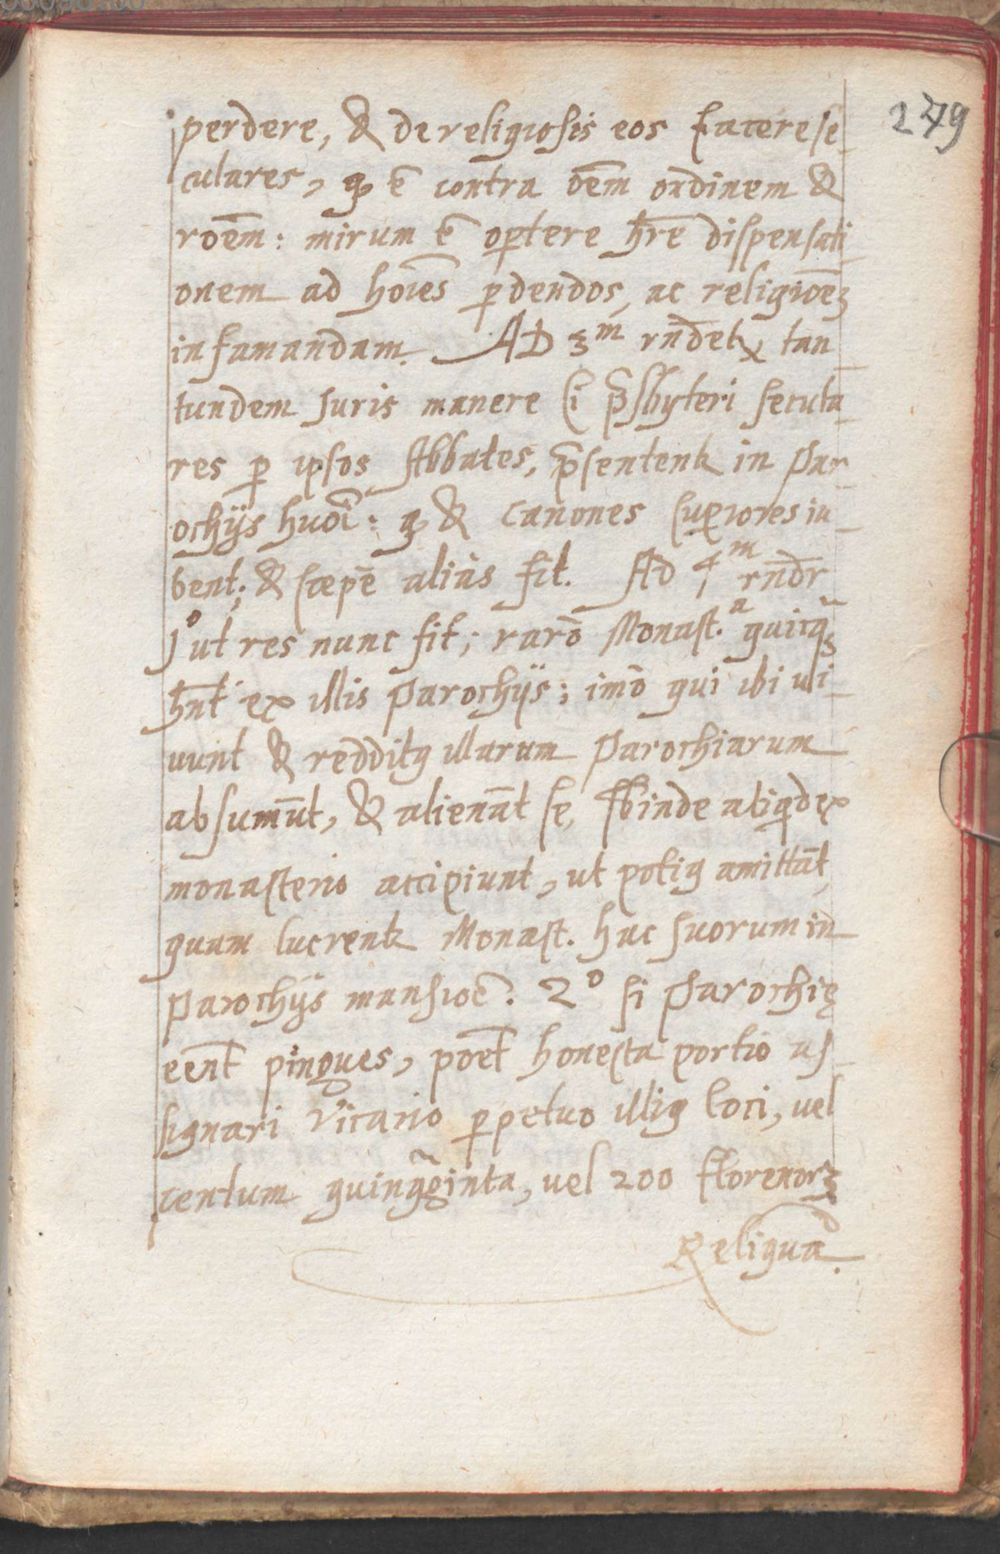 279
perdere, & de religiosis eos facere se-
culares, qꝫ ē contra oēm ordinem &
roēm: mirum ē oportere hr̄e dispensati-
onem ad hoīes ꝑdendos, ac religioēꝫ
infamandam. AD 3m rñdetr tan
tundem Juris manere si p̄sbyteri secula-
res ꝑ ipsos Abbates, p̄sententr in Par-
ochijs huoī: qꝫ & canones superiores iu-
bent; & sæpè aliàs fit. Ad 4m rñdr
1o ut res nunc fit; rarò Monast.a quicqꝫ
hn̄t ex illis Parochijs; imò qui ibi ui-
uunt & redditus illarum Parochiarum
absumūt, & alienāt se, subinde aliqd ex
monasterio accipiunt, ut potius amittāt,
quam lucrentr Monast. hac suorum in
Parochijs mansioē. 2o si Parochię
eēnt pingues, poēt honesta portio as-
signari Vicario ꝑpetuo illius loci, vel
centum quinq̃ginta, vel 200 florenorꝫ
Reliqua.